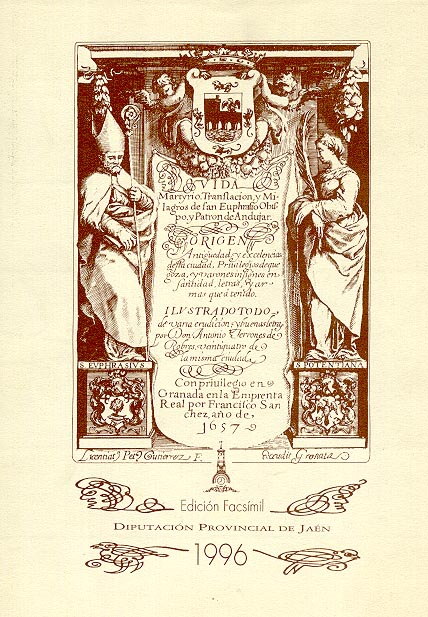 VIDA,
Martyrio, Translacion, y Mi-
lagros de san Euphrasio Obis-
po, y Patron de Andujar.
ORIGEN
Antiguedad y excelencias
desta ciudad, Privilegios de que
goza, y varones insignes en
santidad, letras, y ar-
mas que à tenido.
ILVSTRADO TODO
de varia erudicion y buenas letras
por Don Antonio Terrones de
Robres, veintiquatro de
la misma ciudad.
Con privilegio en
Granada en la Emprenta
Real por Francisco San
chez, año de,
1657
S. EUPHRASIVS
S. POTENTIANA
Licenciat Gutierrez F.
Excudit Granata
Edición Facsímil
DIPUTACIÓN PROVINCIAL DE JAÉN
1996